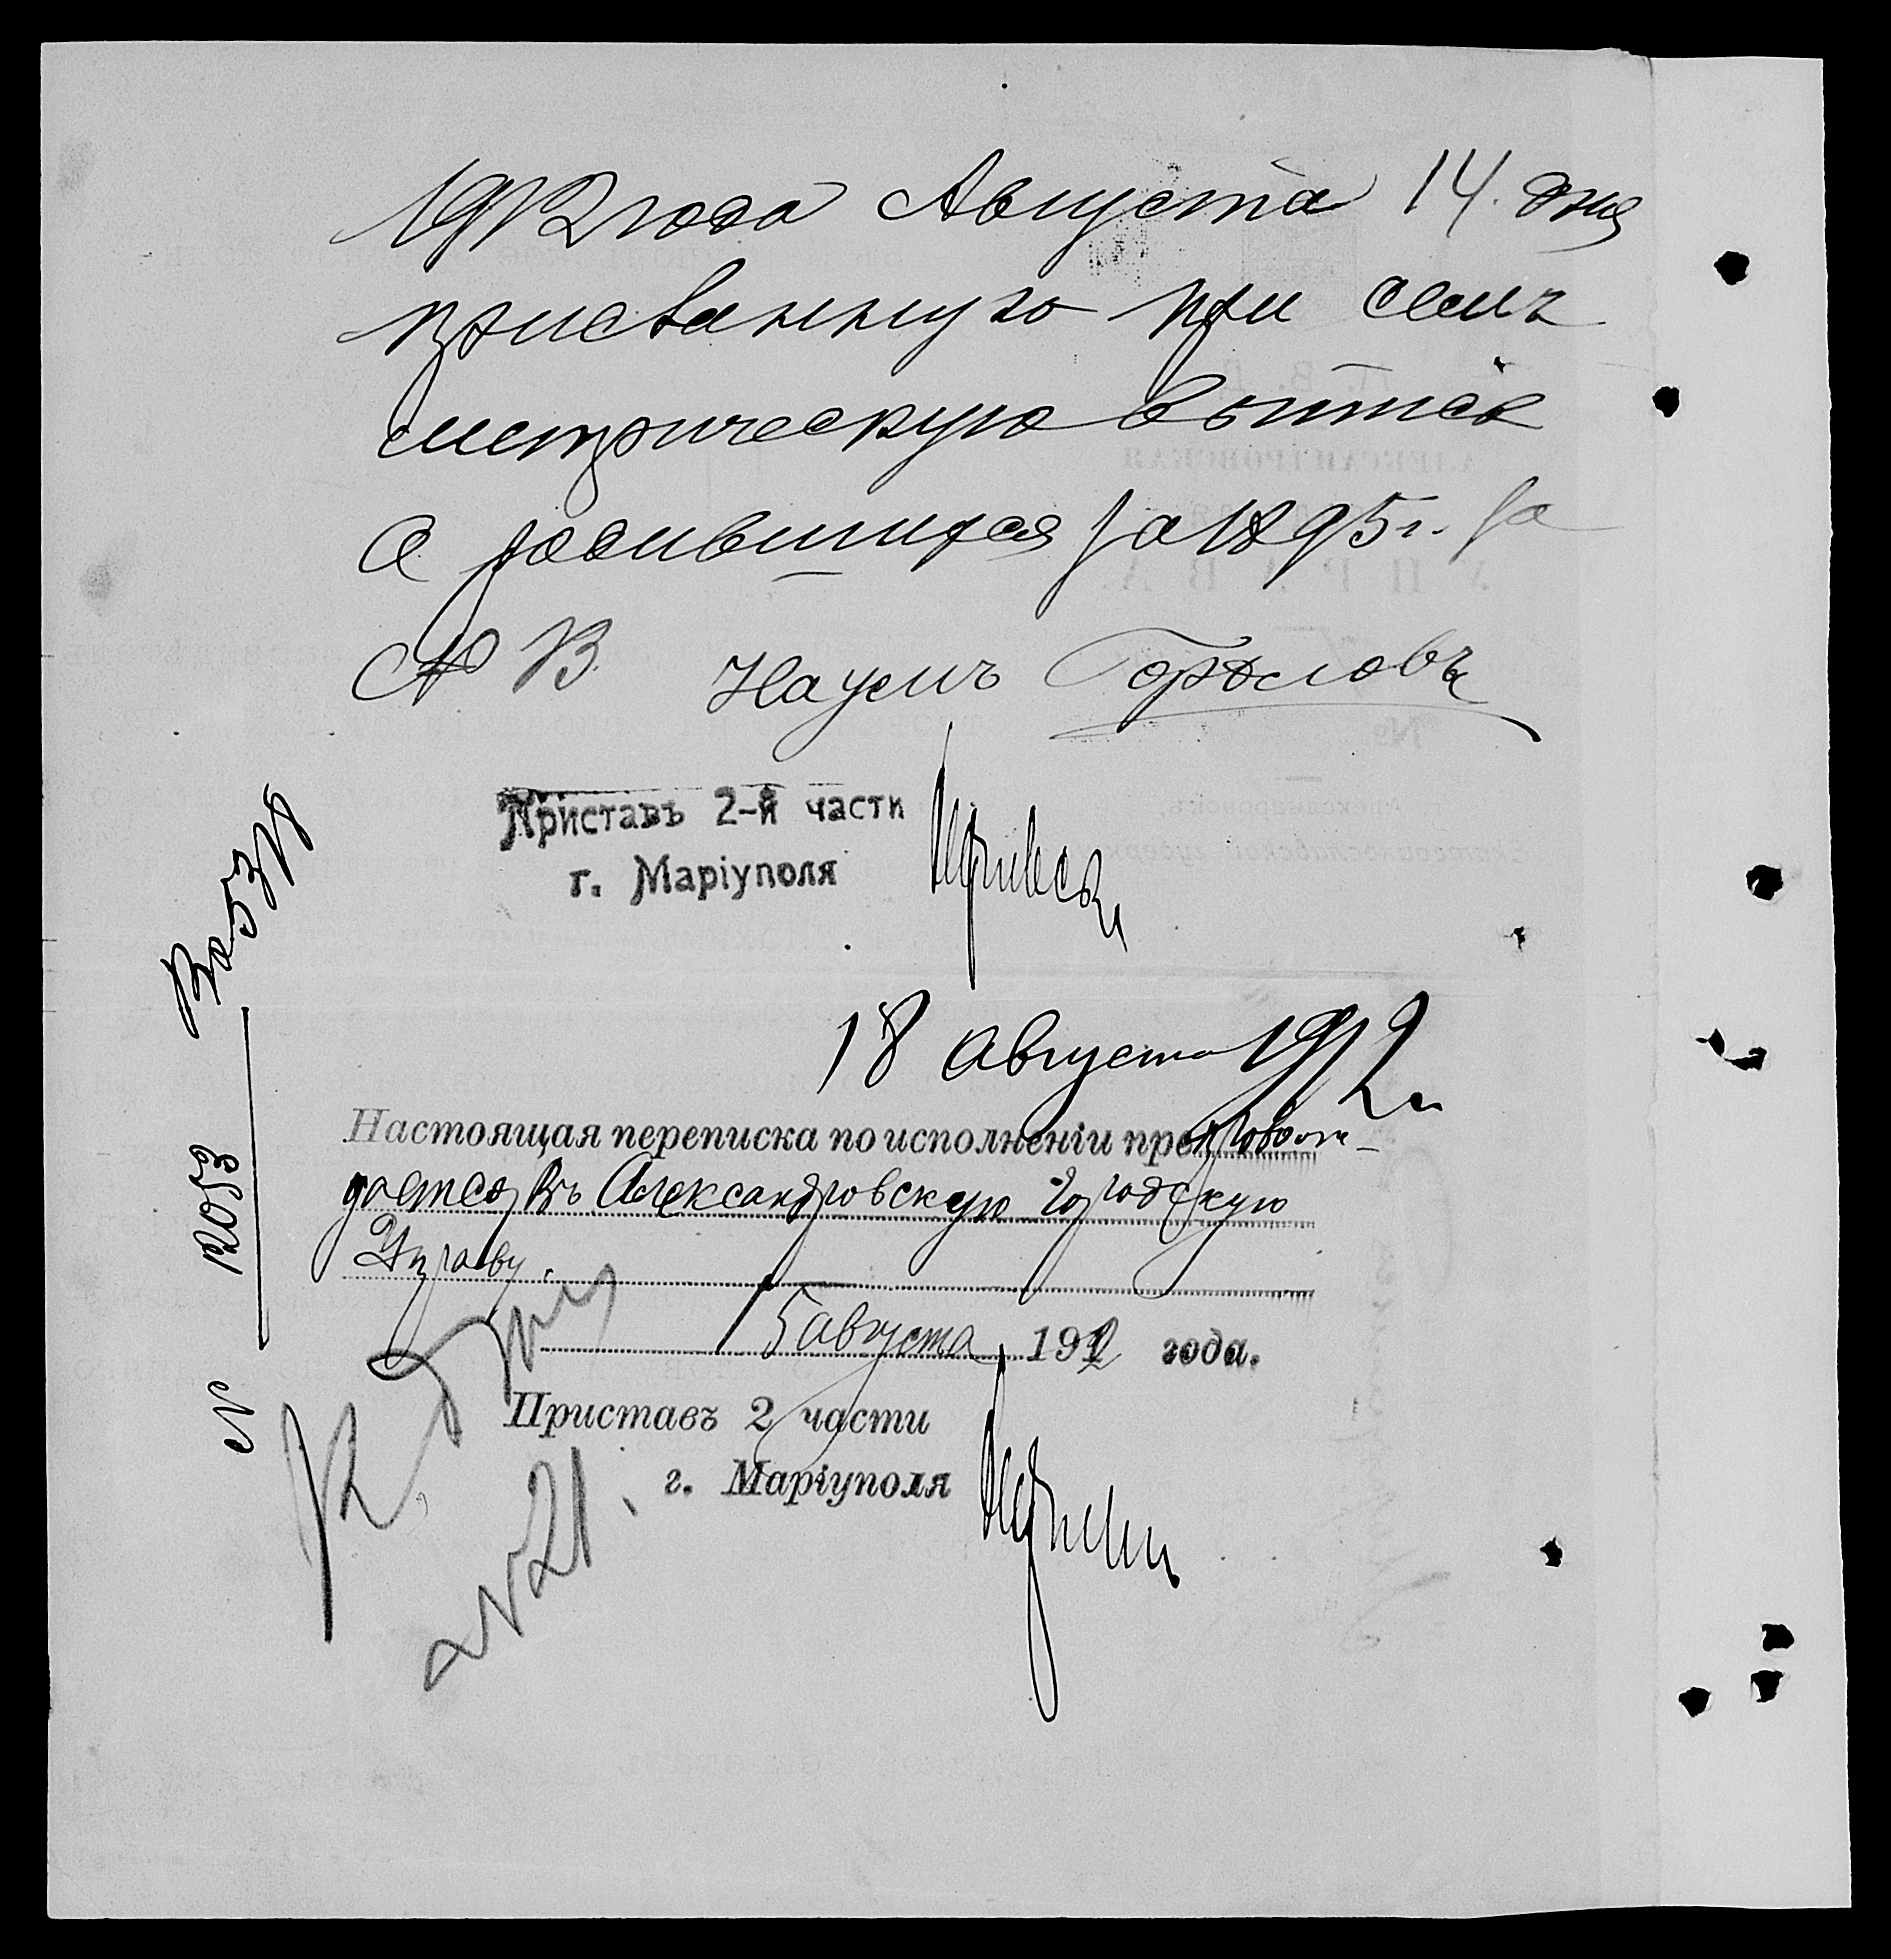 1912 года Августа 14. дня
присланную при семъ
метрическую выпись
о родившихся за 1895 г. за
№ 13. Наумъ Горяловъ
Приставъ 2-й части
г. Маріуполя
18 августа 1912 г.
Настоящая переписка по исполненіи препровож-
дается въ Александровскую Городскую
Управу.
15 августа 1912 года.
Приставъ 2 части
г. Маріуполя
№ 12053
№ 21.